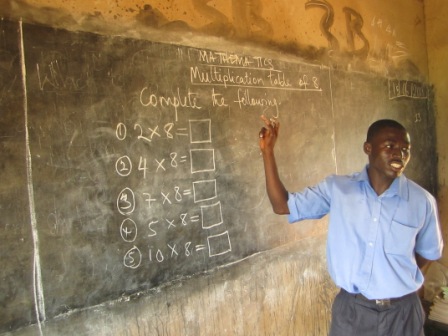 3B
MATHEMATICS
Multiplication table of 8
Complete the following.
① 2×8=□
② 4×8=□
③ 7×8=□
④ 5×8=□
⑤ 10×8=□